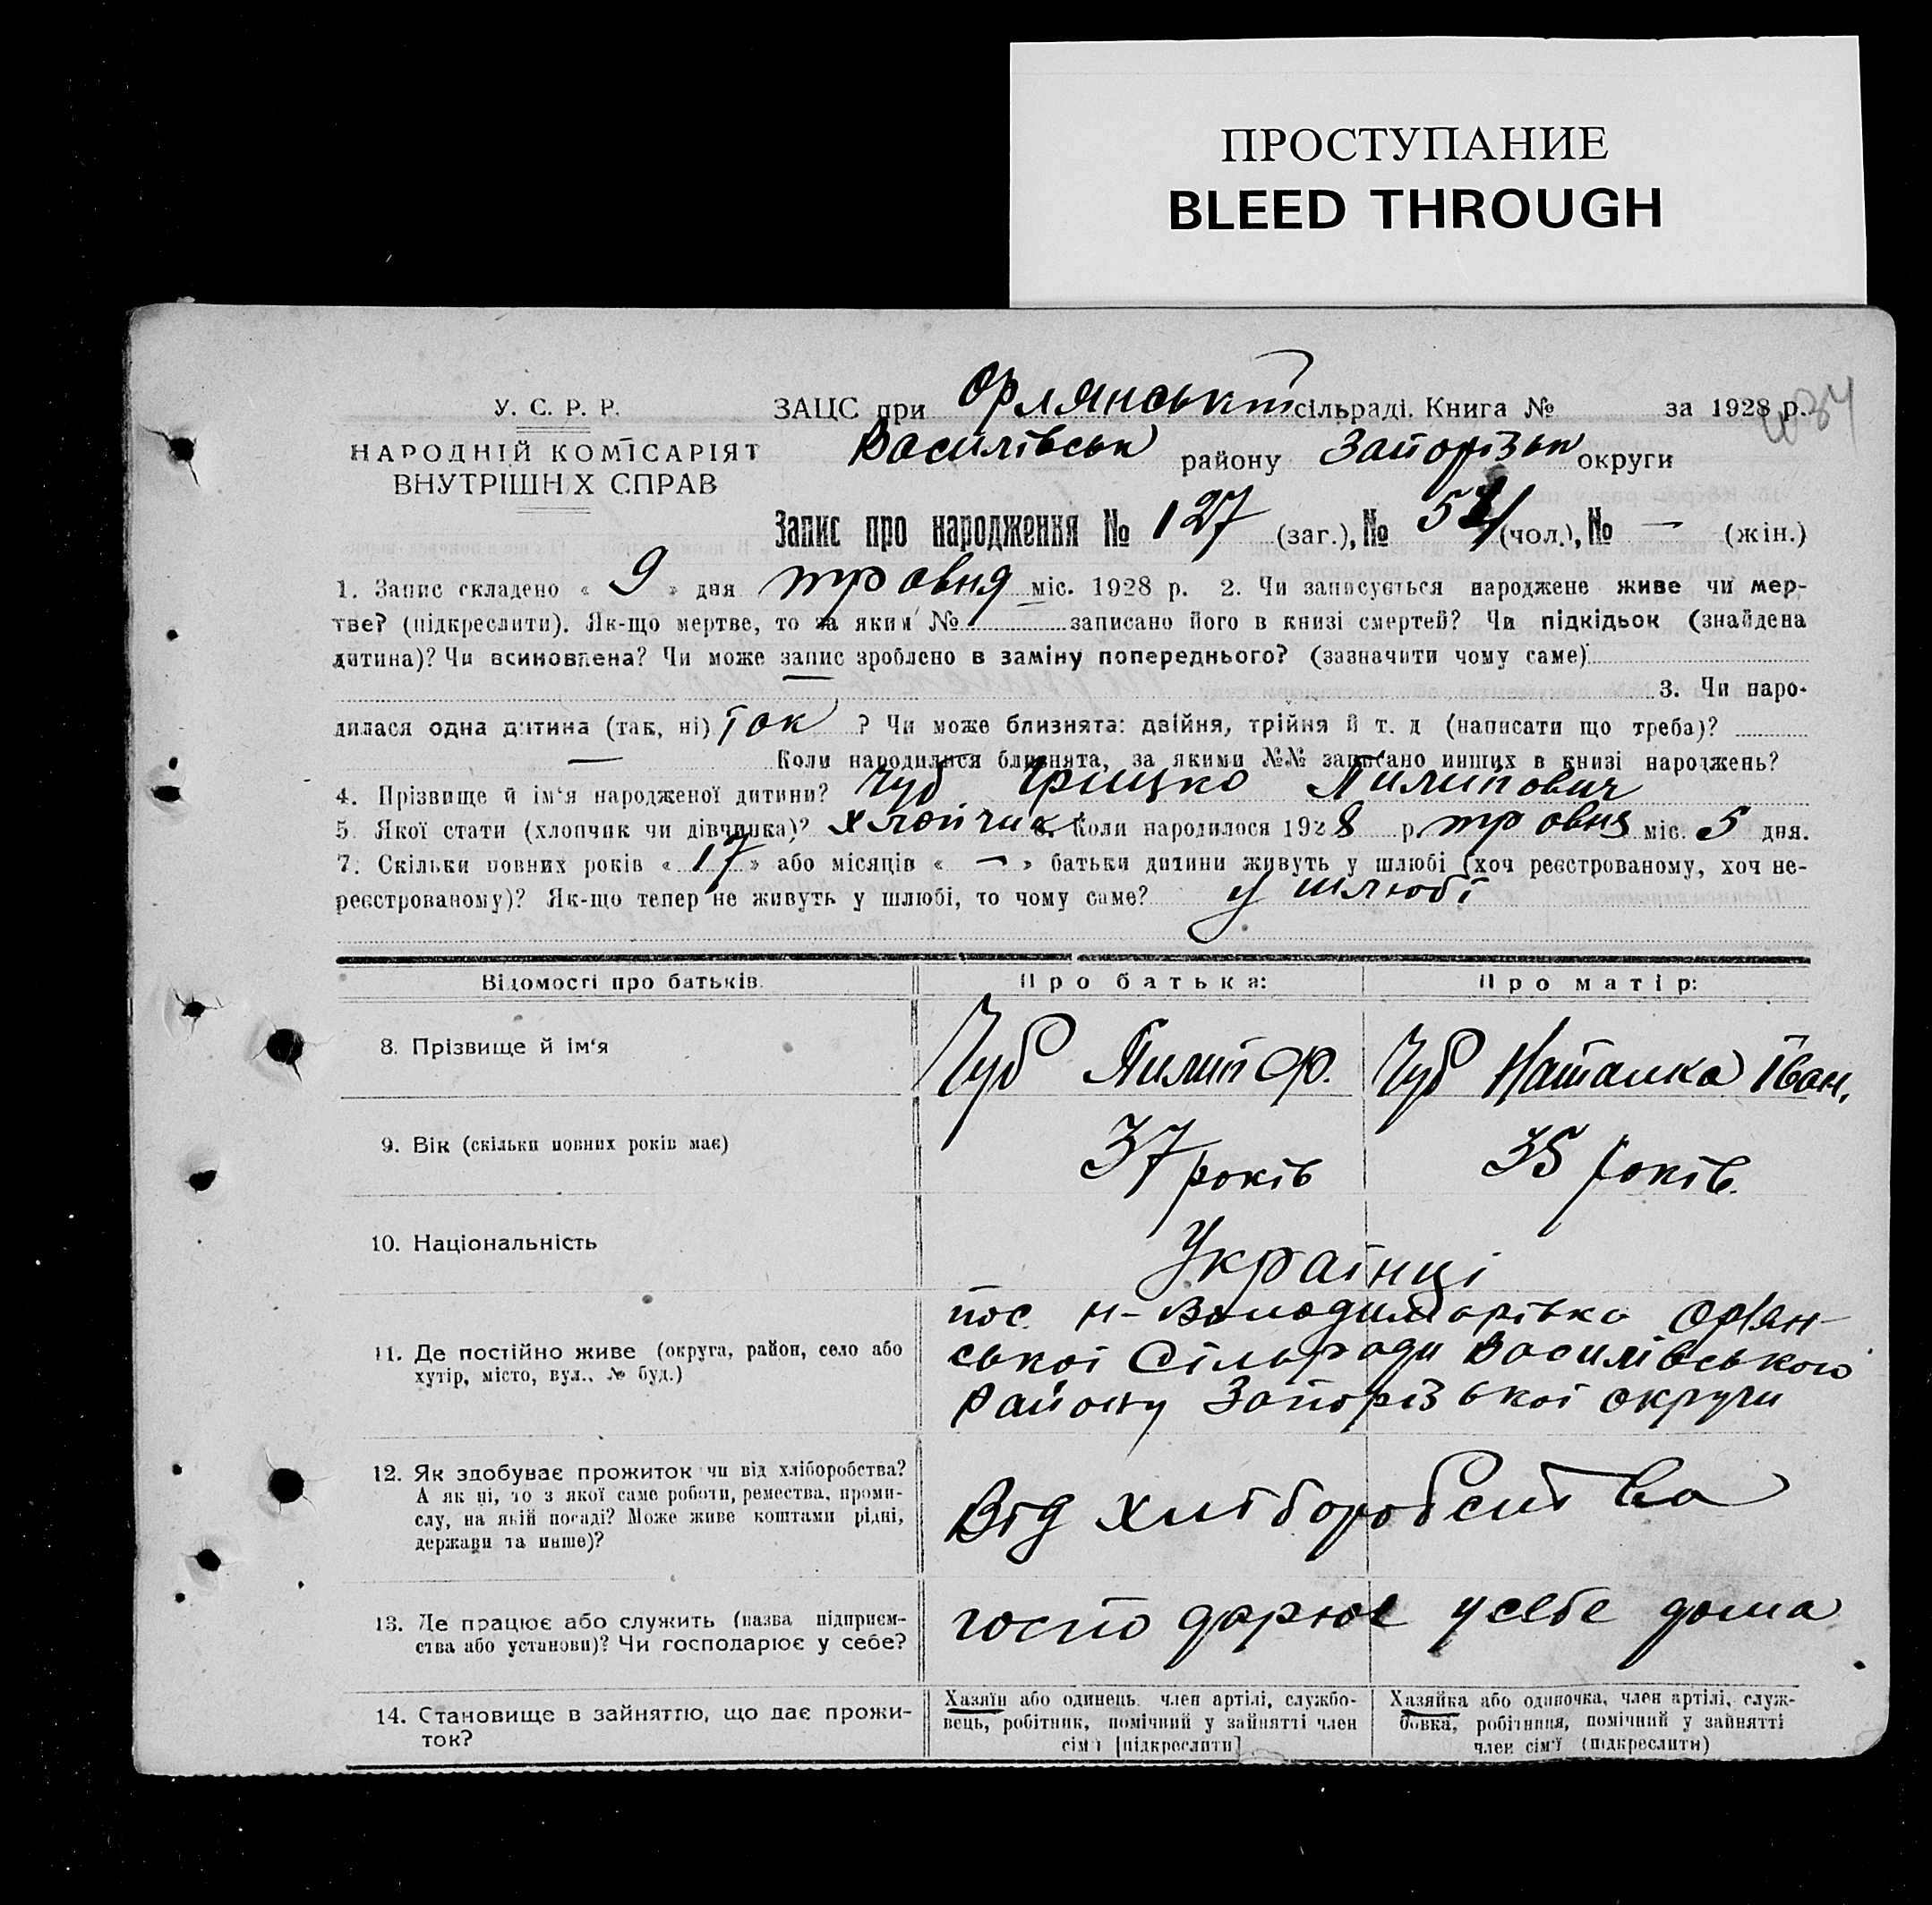 ПРОСТУПАНИЕ
BLEED THROUGH
У. С. Р. Р.
НАРОДНІЙ КОМІСАРІЯТ
ВНУТРІШНІХ СПРАВ
ЗАЦС при Орлянській сільраді. Книга № за 1928 р.
Василівськ району Запорізьк округи
Запис про народження № 127 (заг.), № (чол.), № — (жін.)
1. Запис складено « 9 » дня травня міс. 1928 р. 2. Чи записується народжене живе чи мер-
тве? (підкреслити). Як-що мертве, то за яким № записано його в книзі смертей? Чи підкідьок (знайдена
дитина)? Чи всиновлена? Чи може запис зроблено в заміну попереднього? (зазначити чому саме)
3. Чи наро-
дилася одна дитина (так, ні) так ? Чи може близнята: двійня, трійня й т. д (написати що треба)?
— Коли народилися близнята, за якими №№ записано инших в книзі народжень?
4. Прізвище й ім‘я народженої дитини? Чуб Грицко Пилипович
5. Якої стати (хлопчик чи дівчинка)? хлопчик 6. Коли народилося 1928 р. травня міс. 5 дня.
7. Скільки повних років « 17 » або місяців « — » батьки дитини живуть у шлюбі (хоч реєстрованому, хоч не-
реєстрованому)? Як-що тепер не живуть у шлюбі, то чому саме? У шлюбі
Відомості про батьків. Про батька: Про матір:
8. Прізвище й ім‘я Чуб Пилип Ф. Чуб Наталка Іван.
9. Вік (скільки повних років має) 37 років 35 років.
10. Національність Українці
11. Де постійно живе (округа, район, село або
хутір, місто, вул., № буд.)
пос. Н-Володимирівка Орлян-
ської Сільради Василівського
Району Запорізької округи
12. Як здобуває прожиток чи від хліборобства?
А як ні, то з якої саме роботи, ремества, проми-
слу, на якій посаді? Може живе коштами рідні,
держави та инше)?
Від хліборобства
13. Де працює або служить (назва підприєм-
ства або установи)? Чи господарює у себе?
господарює у себе дома
14. Становище в зайняттю, що дає прожи-
ток?
Хазяїн або одинець, член артілі, службо-
вець, робітник, помічний у зайнятті член
сім‘ї [підкреслити]
Хазяйка або одиночка, член артілі, служ-
бовка, робітниця, помічний у зайнятті
член сім‘ї (підкреслити)